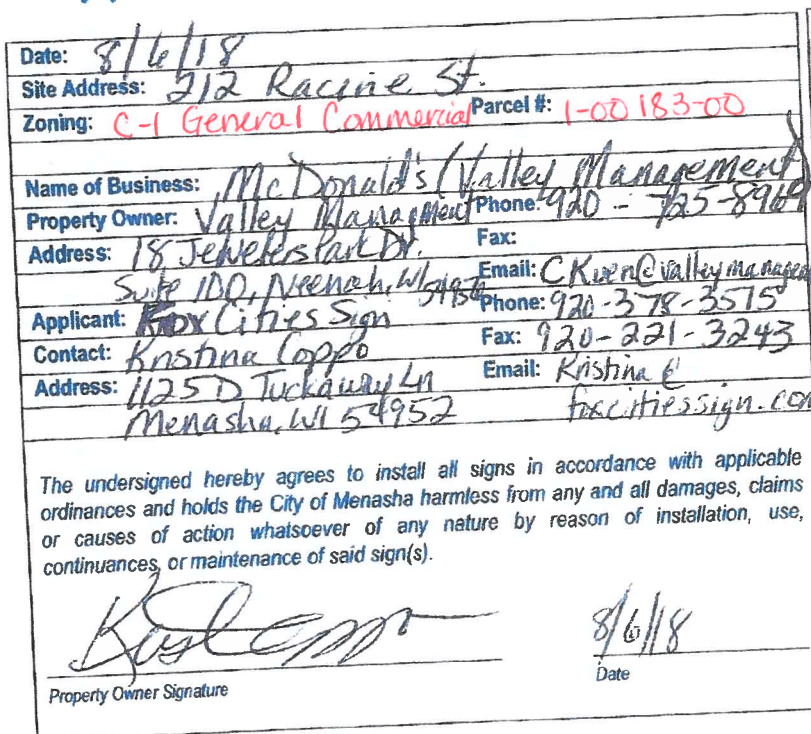 Date: 8/6/18
Site Address: 212 Racine St.
Zoning: C-1 General Commercial Parcel #: 1-00183-00
Name of Business: McDonald's (Valley Management)
Property Owner: Valley Management Phone: 920-725-8969
Address: 18 Jewelers Park Dr. Fax:
Suite 100, Neenah, WI 54956 Email: CKuen@valleymanagem
Applicant: Fox Cities Sign Phone: 920-378-3515
Contact: Kristina Coppo Fax: 920-221-3243
Address: 1125 D Tuckaway Ln Email: Kristina@
Menasha, WI 54952 foxcitiessign.com
The undersigned hereby agrees to install all signs in accordance with applicable
ordinances and holds the City of Menasha harmless from any and all damages, claims
or causes of action whatsoever of any nature by reason of installation, use,
continuances, or maintenance of said sign(s).
8/6/18
Property Owner Signature Date